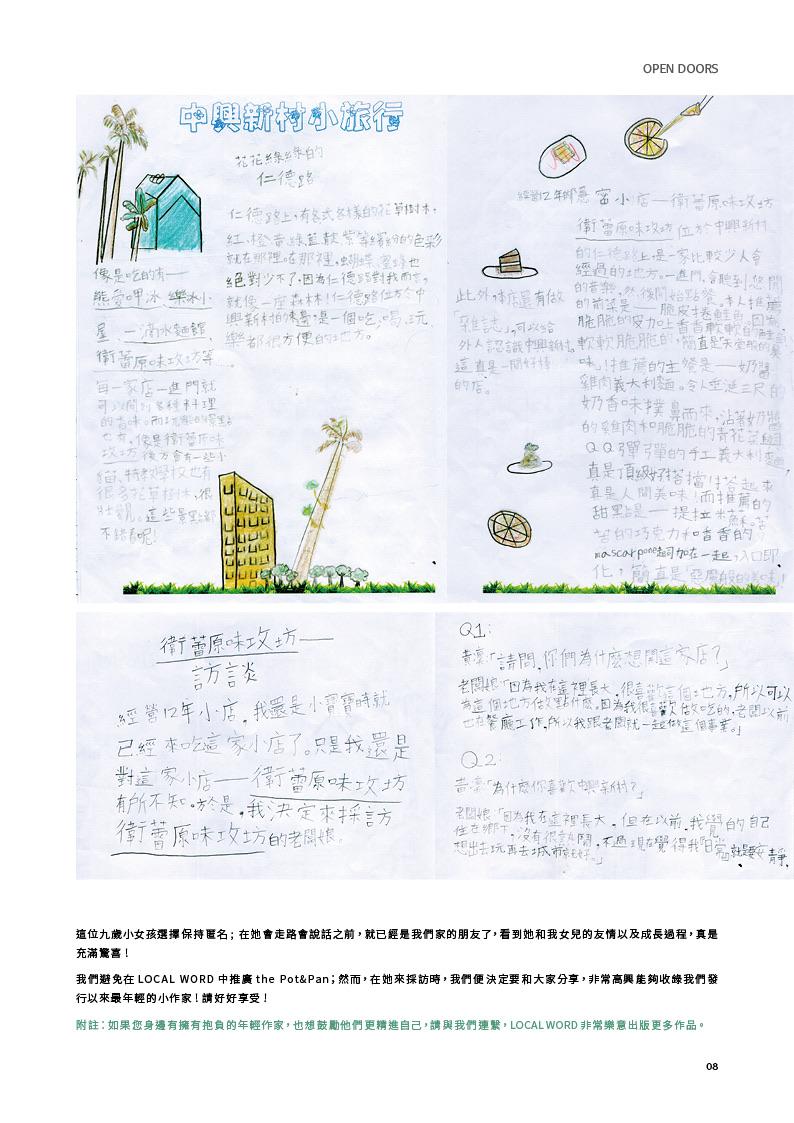 OPEN DOORS
中興新村小旅行
花花綠綠的
仁德路
仁德路上,有各式各樣的花草樹木,
紅、橙、黃、綠、藍、靛、紫等繽紛的色彩
就在那裡。在那裡,蝴蝶、蜜蜂也
絕對少不了,因為仁德路對我而言,
就像一座森林!仁德路位於中
興新村的旁邊,是一個吃、喝、玩、
樂都很方便的地方。
像是吃的有——
熊愛呷冰、樂冰小
星、一滿水麵館、
衛蕾原味攻坊等。
每一家店一進門就
可以聞到各種料理
的香味。而玩樂的景點
也有。像是衛蕾原味
攻坊後方會有一些小
貓、特教學校也有
很多花草樹木,很
壯觀。這些景點都
不錯看呢!
經營12年的隱密小店—衛蕾原味攻坊
衛蕾原味攻坊位於中興新村
的仁德路上,是一家比較少人會
經過的地方。一進門,會聽到悠閒
的音樂,然後開始點餐。本人推薦
的前菜是——脆皮捲鮭魚,因為
脆脆的皮加上香香軟軟的鮭魚
軟軟脆脆的,簡直是天堂般的美
味!推薦的主餐是——奶醬
雞肉義大利麵。令人垂涎三尺的
奶香味撲鼻而來,沾著奶醬
的雞肉和脆脆的青花菜跟
QQ彈彈的手工義大利麵
真是頂級好搭擋!搭起來
真是人間美味!而推薦的
甜點是——提拉米蘇。苦
苦的巧克力和香香的
mascarpone起司加在一起,入口即
化,簡直是惡魔般的美味!
此外,本店還有做
「雜誌」,可以給
外人認識中興新村。
這真是一間好棒
的店。
衛蕾原味攻坊——
訪談
經營12年小店,我還是小寶寶時就
已經來吃這家小店了。只是我還是
對這家小店——衛蕾原味攻坊
有所不知。於是,我決定來採訪
衛蕾原味攻坊的老闆娘。
Q1:
「請問,你們為什麼想開這家店?」
老闆娘:「因為我在這裡長大,很喜歡這個地方,所以可以
為這個地方做點什麼。因為我很喜歡做吃的,老闆以前
也在餐廳工作,所以我跟老闆就一起做這個事業。」
Q2:
「為什麼你喜歡中興新村?」
老闆娘:「因為我在這裡長大,但在以前,我覺的自己
住在鄉下,沒有很熱鬧,不過現在覺得我日常就是要安靜,
想出去玩再去城市就好。」
這位九歲小女孩選擇保持匿名；在她會走路會說話之前，就已經是我們家的朋友了，看到她和我女兒的友情以及成長過程，真是
充滿驚喜！
我們避免在 LOCAL WORD 中推廣 the Pot&Pan；然而，在她來採訪時，我們便決定要和大家分享，非常高興能夠收錄我們發
行以來最年輕的小作家！請好好享受！
附註：如果您身邊有擁有抱負的年輕作家，也想鼓勵他們更精進自己，請與我們連繫，LOCAL WORD 非常樂意出版更多作品。
08